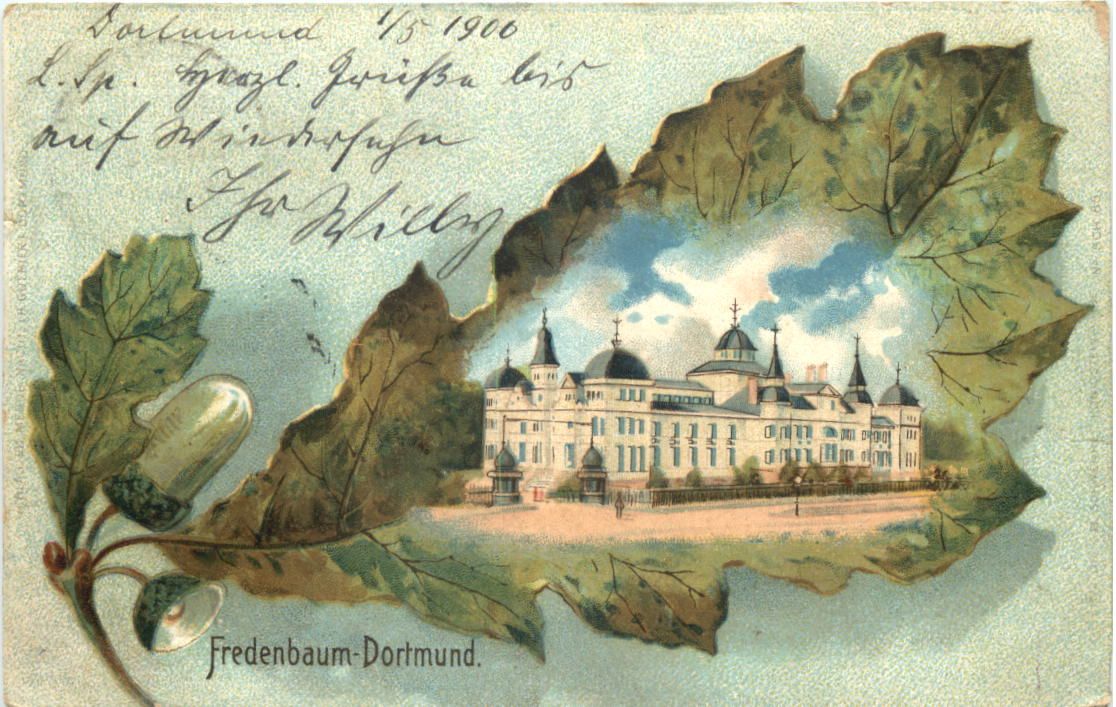 Dortmund 1/5 1900
L. Sp. Herzl. Grüße bis
auf Wiedersehn
Ihr Willy
Fredenbaum-Dortmund.